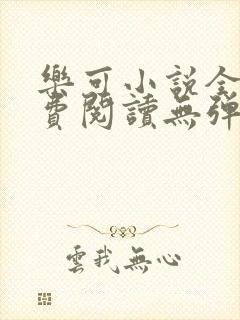 樂可小說全
費閱讀無彈
雲我無心